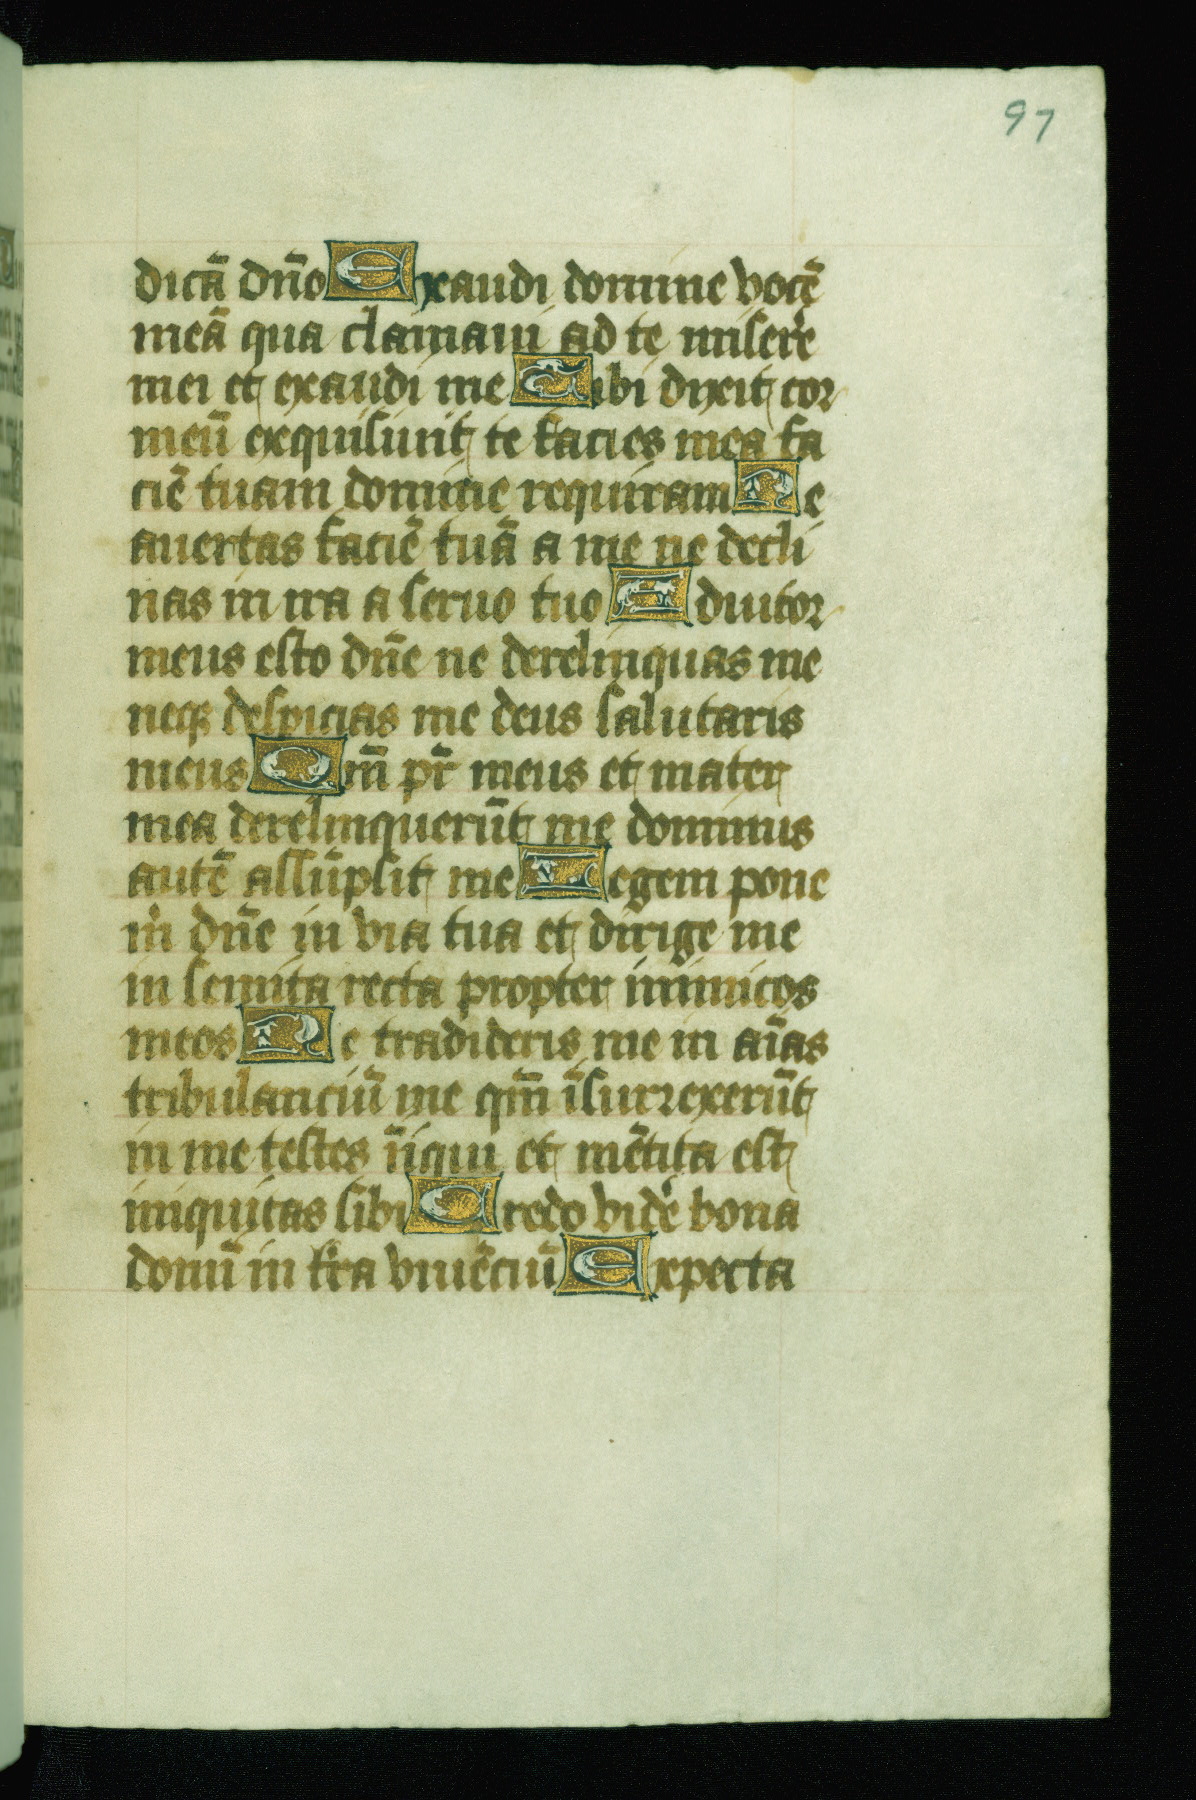 97
dicā dn̄o Exaudi domine vocē
meā qua clamaui ad te misere
mei et exaudi me Tibi dixit cor
meū exquisiuit te facies mea fa
ciē tuam domine requiram Ne
auertas faciē tuā a me ne decli
nas in ira a seruo tuo Adiutor
meus esto dn̄e ne derelinquas me
neqꝫ despicias me deus salutaris
meus Qm̄ pr̄ meus et mater
mea derelinquerūt me dominus
autē assūpsit me Legem pone
m̄ dn̄e in via tua et dirige me
in semita recta propter inimicos
meos Ne tradideris me in aīas
tribulanciū me qm̄ īsurrexerūt
in me testes īiqui et mētita est
iniquitas sibi Credo vidē bona
domī in tr̄a viuēciū Expecta